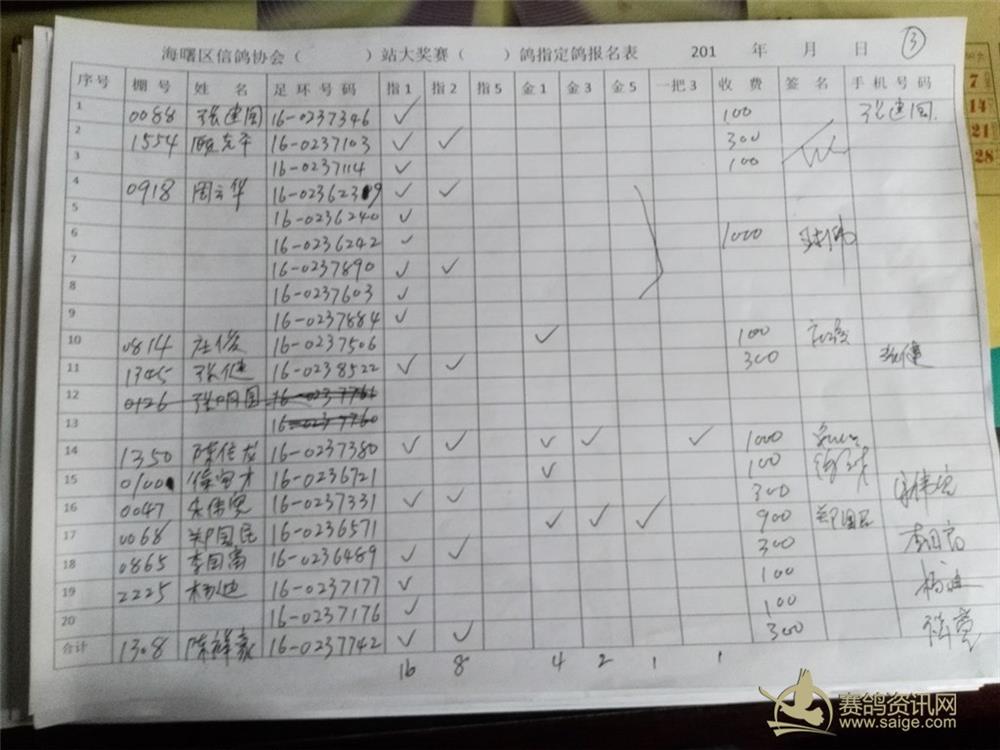 海曙区信鸽协会（ ）站大奖赛（ ）鸽指定鸽报名表 201 年 月 日 ③
序号 棚号 姓名 足环号码 指1 指2 指5 金1 金3 金5 一把3 收费 签名 手机号码
1 0088 张建国 16-0237346 ✓ 100 张建国
2 1554 顾克平 16-0237103 ✓ ✓ 300
3 16-0237114 ✓ 100
4 0918 周云华 16-0236239 ✓ ✓
5 16-0236240 ✓
6 16-0236242 ✓ 1000
7 16-0237890 ✓ ✓
8 16-0237603 ✓
9 16-0237884 ✓
10 0814 杜俊 16-0237506 ✓ 100
11 1345 张健 16-0238522 ✓ ✓ 300 张健
12 0126 张明国 16-0237761
13 16-0237760
14 1350 陈信龙 16-0237380 ✓ ✓ ✓ ✓ ✓ 1000
15 0100 16-0236721 ✓ 100
16 0047 16-0237331 ✓ ✓ 300
17 0068 郑国民 16-0236571 ✓ ✓ ✓ 900 郑国民
18 0865 李国富 16-0236489 ✓ ✓ 300
19 2225 杨迪 16-0237177 ✓ 100 杨迪
20 16-0237176 ✓ 100
合计 1308 陈祥豪 16-0237742 ✓ ✓ 300
16 8 4 2 1 1
7
14
21
28
赛鸽资讯网
www.saige.com